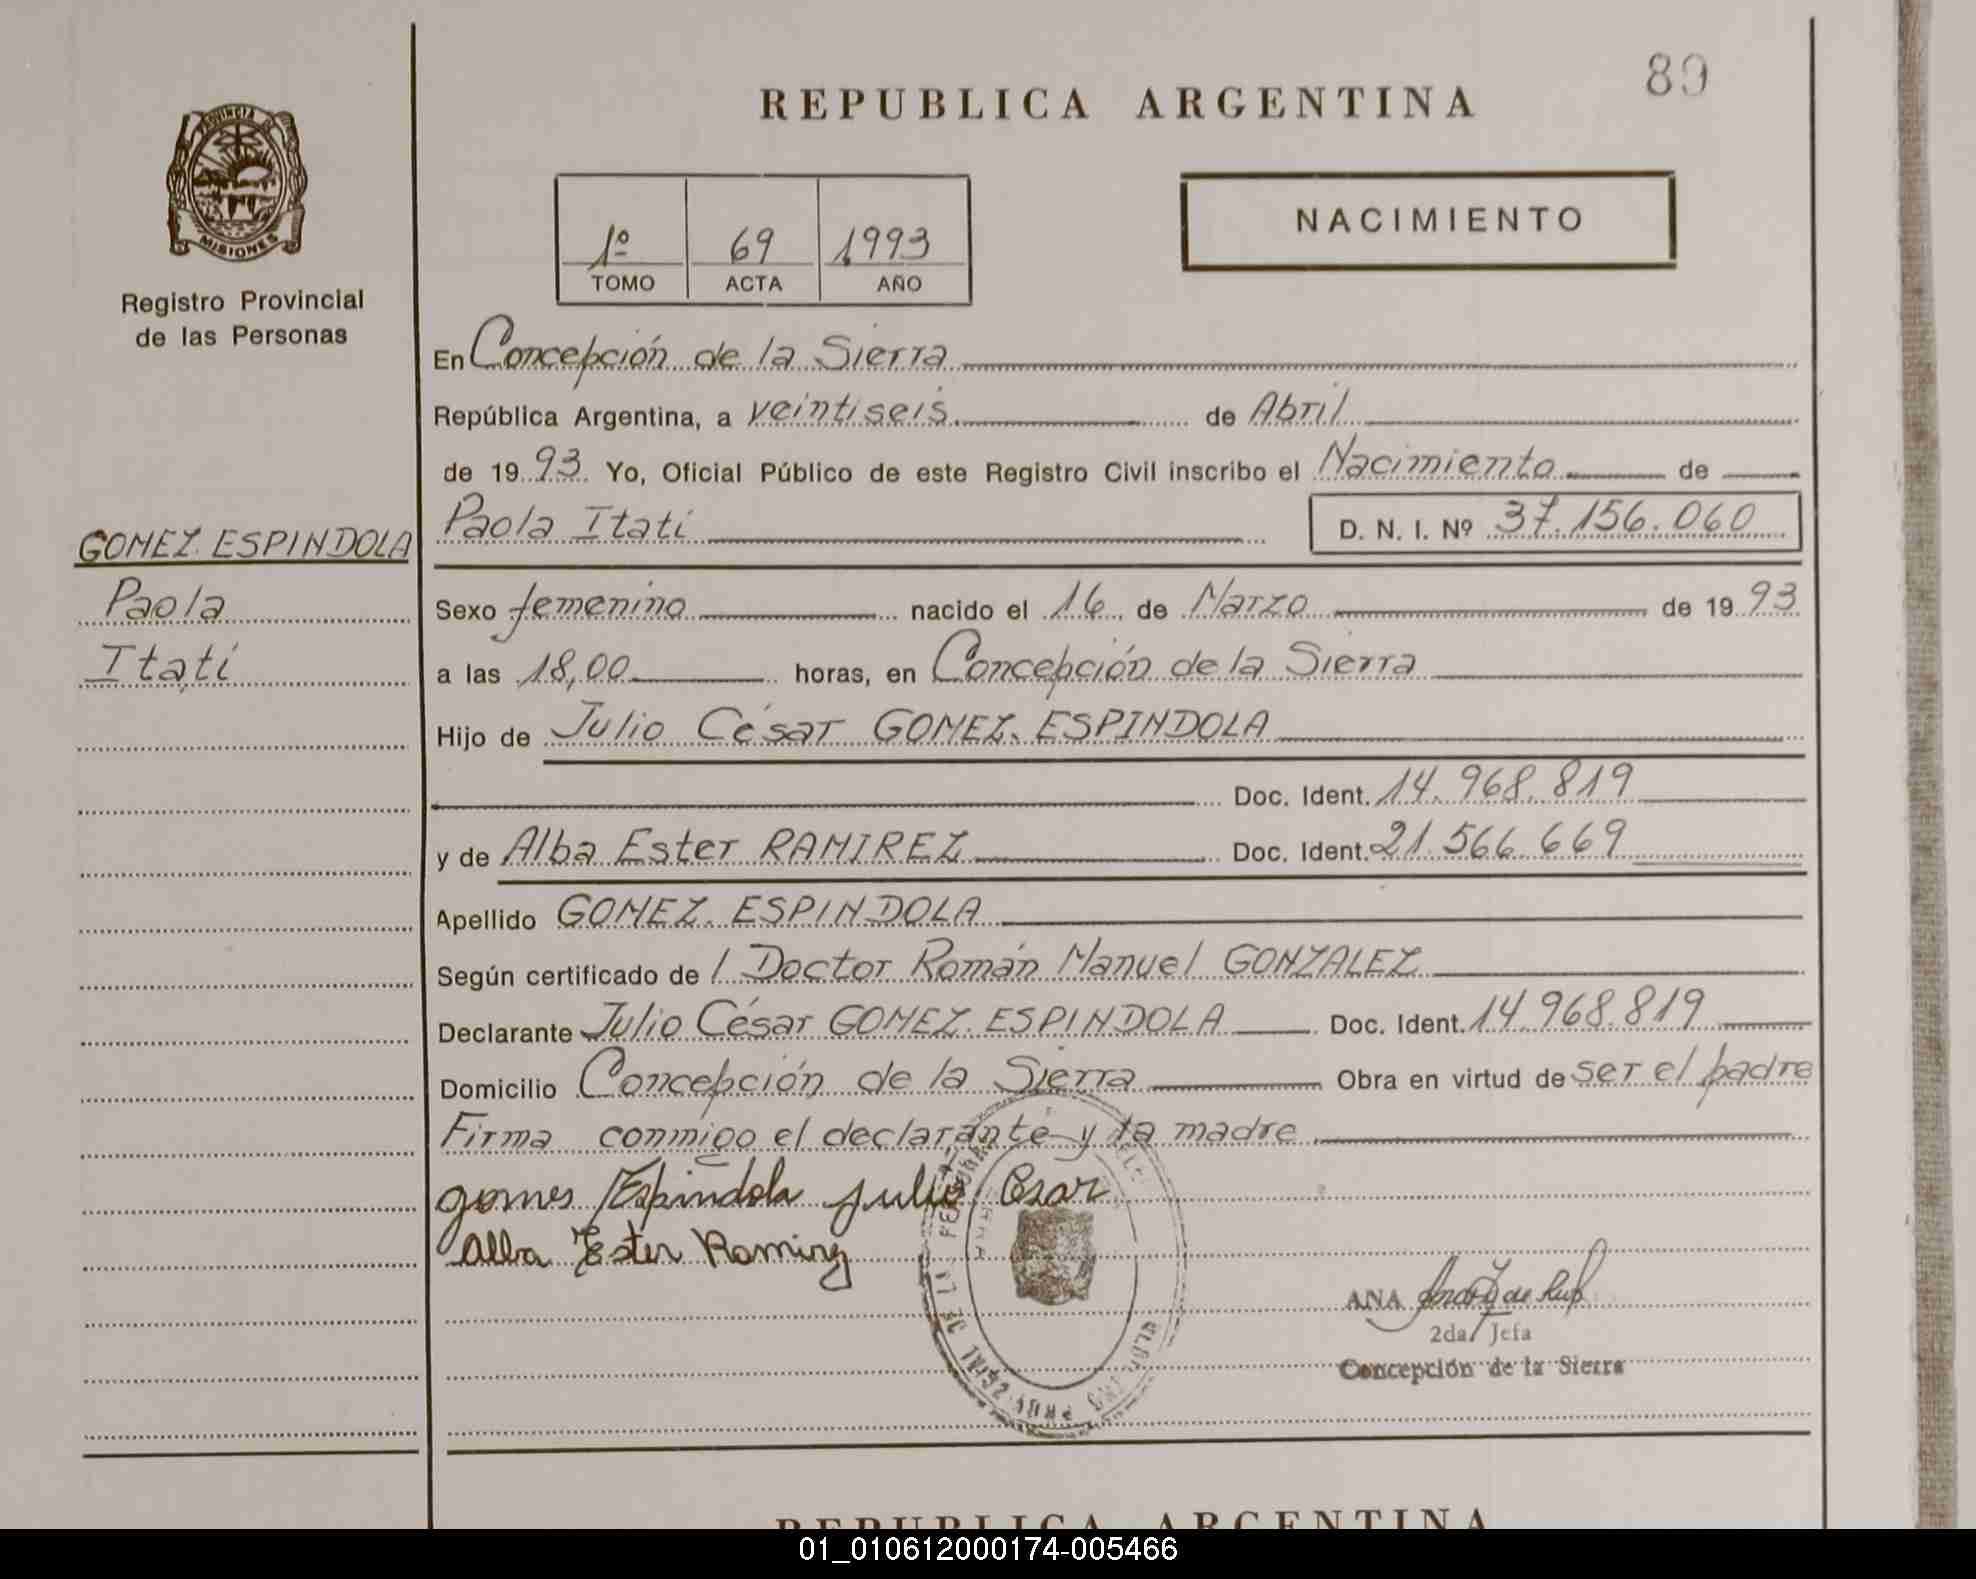 89
REPUBLICA ARGENTINA
PROVINCIA DE
MISIONES
Registro Provincial
de las Personas
1º 69 1993
TOMO ACTA AÑO
NACIMIENTO
En Concepción de la Sierra
República Argentina, a veintiseis de Abril
de 1993. Yo, Oficial Público de este Registro Civil inscribo el Nacimiento de
Paola Itatí D. N. I. Nº 37.156.060
GOMEZ ESPINDOLA
Paola
Itatí
Sexo femenino nacido el 16 de Marzo de 1993
a las 18,00 horas, en Concepción de la Sierra
Hijo de Julio César GOMEZ ESPINDOLA
Doc. Ident. 14.968.819
y de Alba Ester RAMIREZ Doc. Ident. 21.566.669
Apellido GOMEZ ESPINDOLA
Según certificado de l Doctor Román Manuel GONZALEZ
Declarante Julio César GOMEZ ESPINDOLA Doc. Ident. 14.968.819
Domicilio Concepción de la Sierra Obra en virtud de ser el padre
Firma conmigo el declarante y la madre
gomes Espindola julio Cesar
Alba Ester Ramirez
ANA
2da Jefa
Concepción de la Sierra
REPUBLICA ARGENTINA
01_010612000174-005466